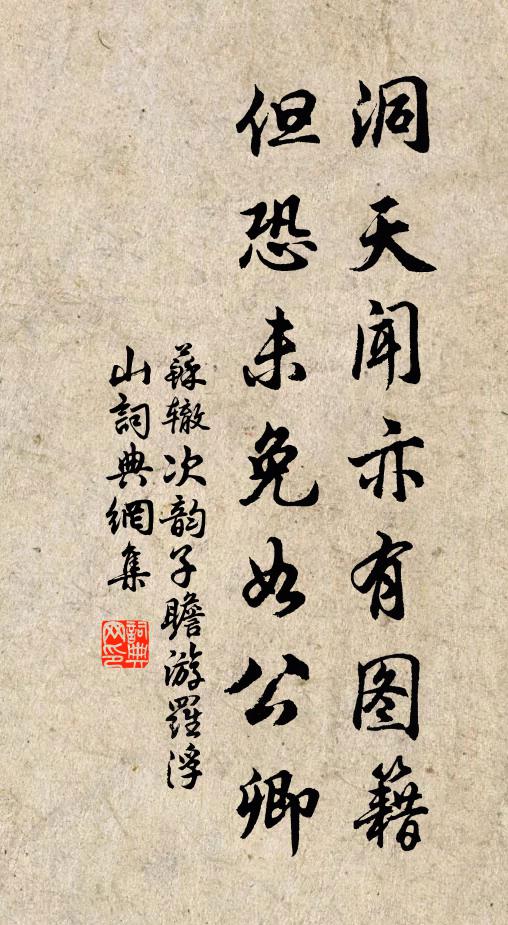 洞天闻亦有图籍
但恐未免如公卿
蘇辙次韵子瞻游羅浮
山詞典網集
詞典网印